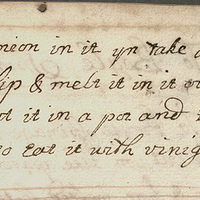 nion in it yn take
lip & melt it in it ov
ot it in a pot and
to eat it with vinig